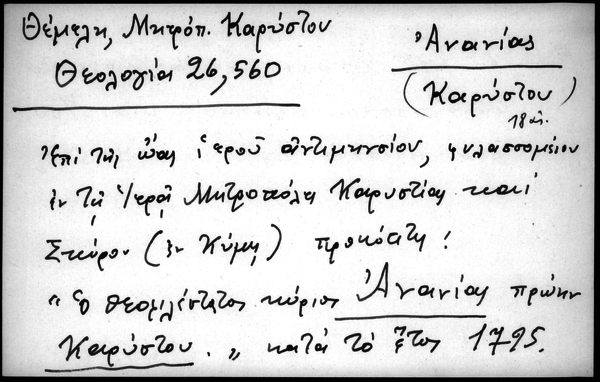 Θέμελη, Μητρόπ. Καρύστου
Θεολογία 26, 560
Ἀνανίας
(Καρύστου)
18 αἰ.
Ἐπὶ τῆς ὤας ἱεροῦ ἀντιμηνσίου, φυλασσομένου
ἐν τῇ Ἱερᾷ Μητροπόλει Καρυστίας καὶ
Σκύρου (ἐν Κύμῃ) προκύπτει:
"ὁ θεοφιλέστατος κύριος Ἀνανίας πρώην
Καρύστου." κατὰ τὸ ἔτος 1795.